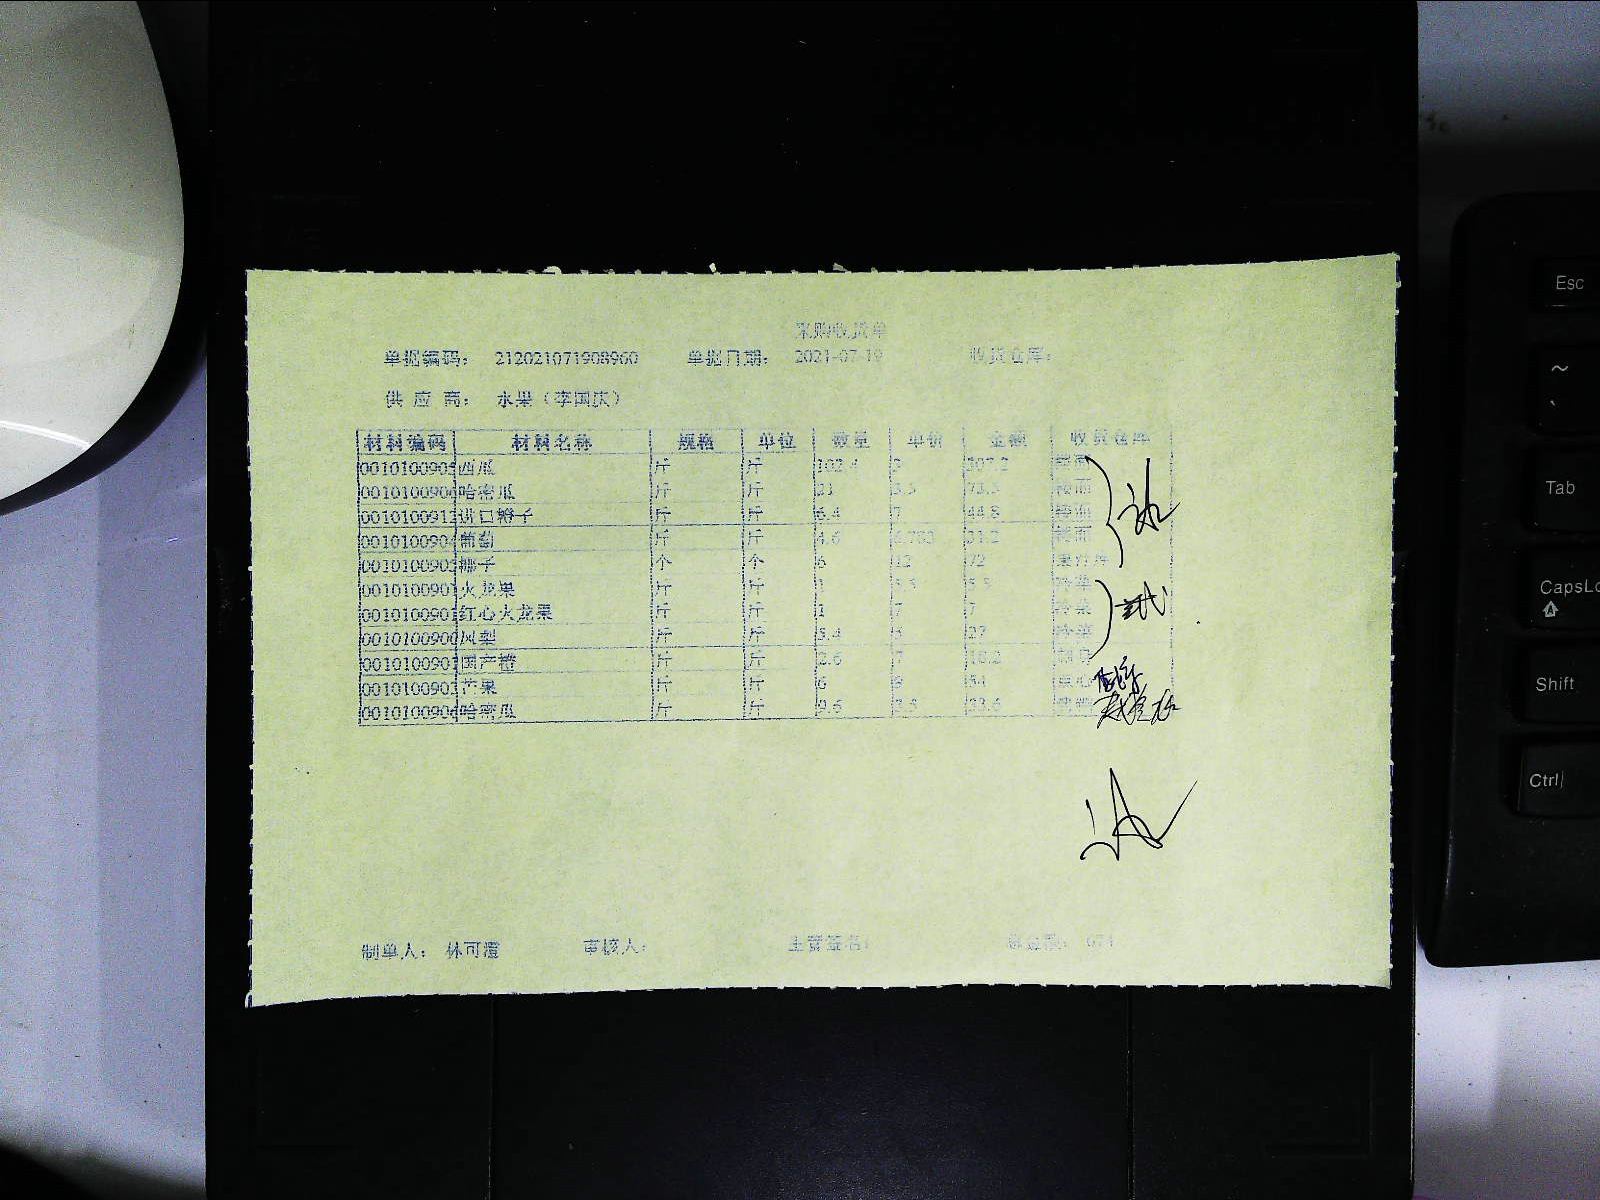 采购收货单
单据编码： 212021071908960 单据日期： 2021-07-19 收货仓库：
供 应 商： 水果（李国庆）
材料编码 材料名称 规格 单位 数量 单价 金额 收货仓库
0010100905 西瓜 斤 斤 102.4 3 307.2 楼面
0010100906 哈密瓜 斤 斤 21 3.5 73.5 楼面
0010100912 进口橙子 斤 斤 6.4 7 44.8 楼面
0010100904 葡萄 斤 斤 4.6 31.2 楼面
0010100902 椰子 个 个 6 12 72
0010100901 火龙果 斤 斤 1 5.5 5.5 冷菜
0010100901 红心火龙果 斤 斤 1 7 7 冷菜
0010100900 凤梨 斤 斤 5.4 5 27 冷菜
0010100901 国产橙 斤 斤 2.6 7 18.2
0010100903 芒果 斤 斤 6 9 54 点心
0010100906 哈密瓜 斤 斤 9.6 3.5 33.6
制单人： 林可澧 审核人： 主管签名： 071
Esc
~
Tab
CapsLo
Shift
Ctrl